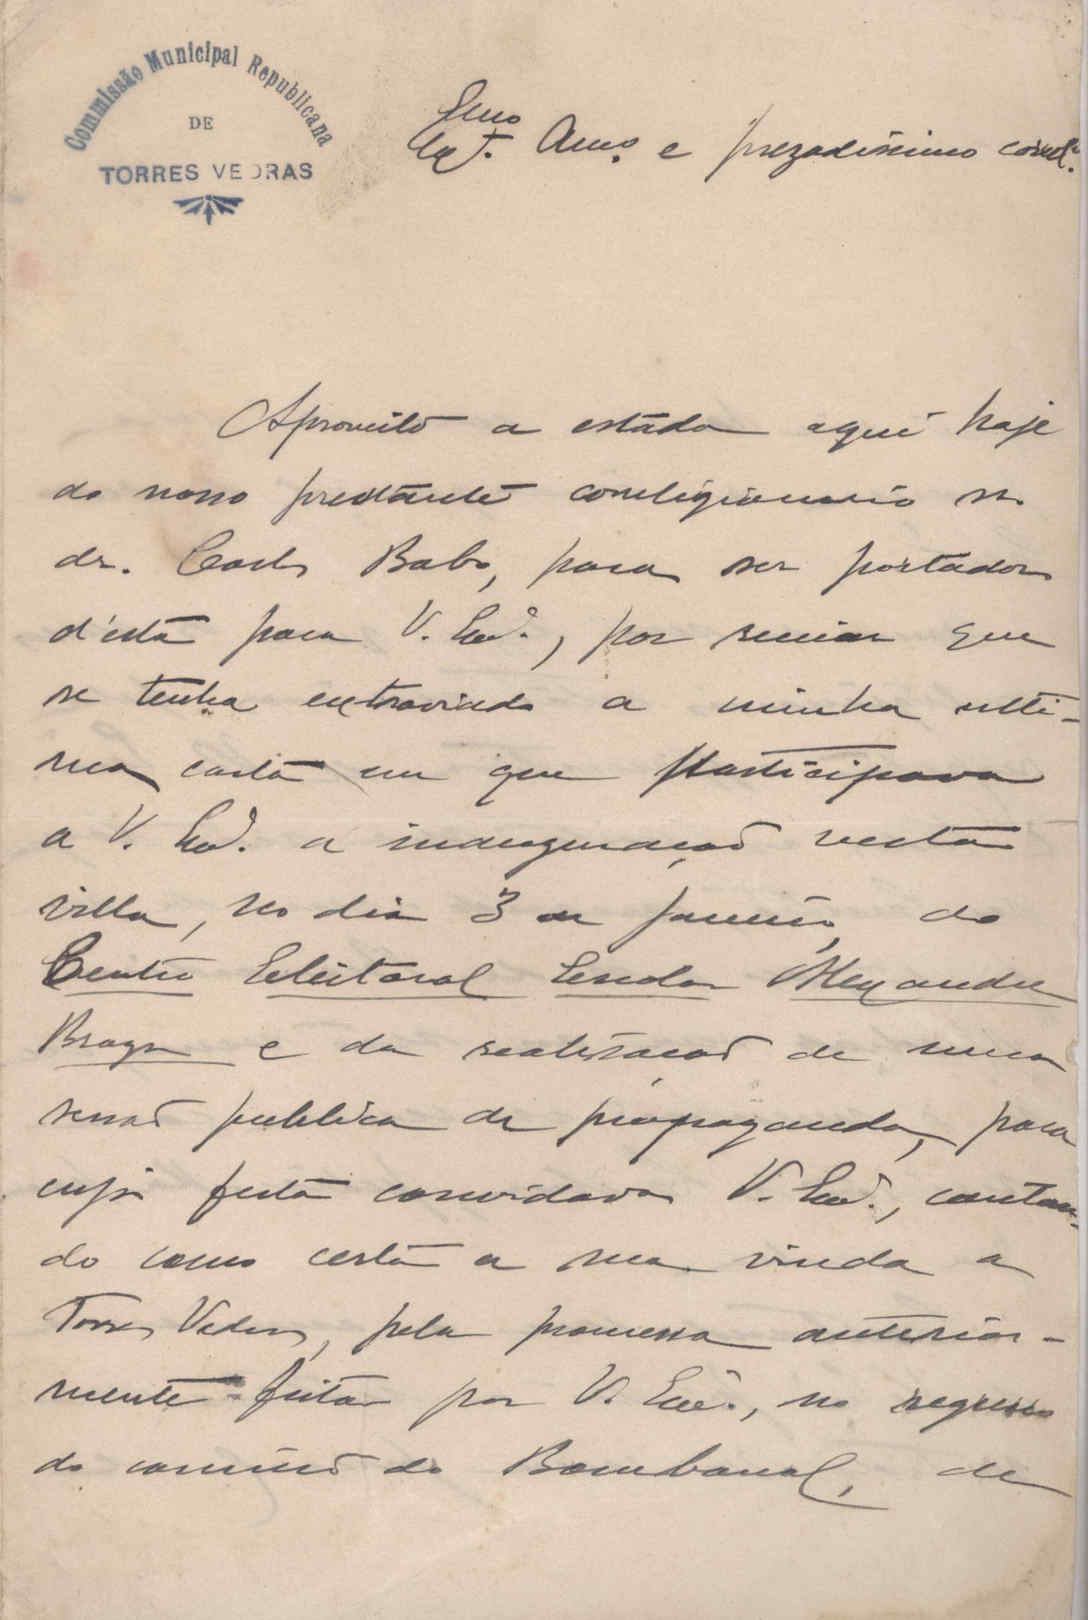 Commissão Municipal Republicana
DE
TORRES VEDRAS
Exmo
Am.º e prezadissimo correl.º
Aproveito a estada aqui hoje
do nosso prestante correligionario sr.
dr. Carlos Babo, para ser portador
d'esta para V. Ex.ª, por recear que
se tenha extraviado a minha ulti-
ma carta em que participava
a V. Ex.ª a inauguração nesta
villa, no dia 3 de janeiro, do
Centro Eleitoral Escolar Alexandre
Braga e da realisação de uma
sessão publica de propaganda, para
cuja festa convidava V. Ex.ª, contan-
do como certa a sua vinda a
Torres Vedras, pela promessa anterior-
mente feita por V. Ex.ª, no regresso
do comicio do Bombarral, de